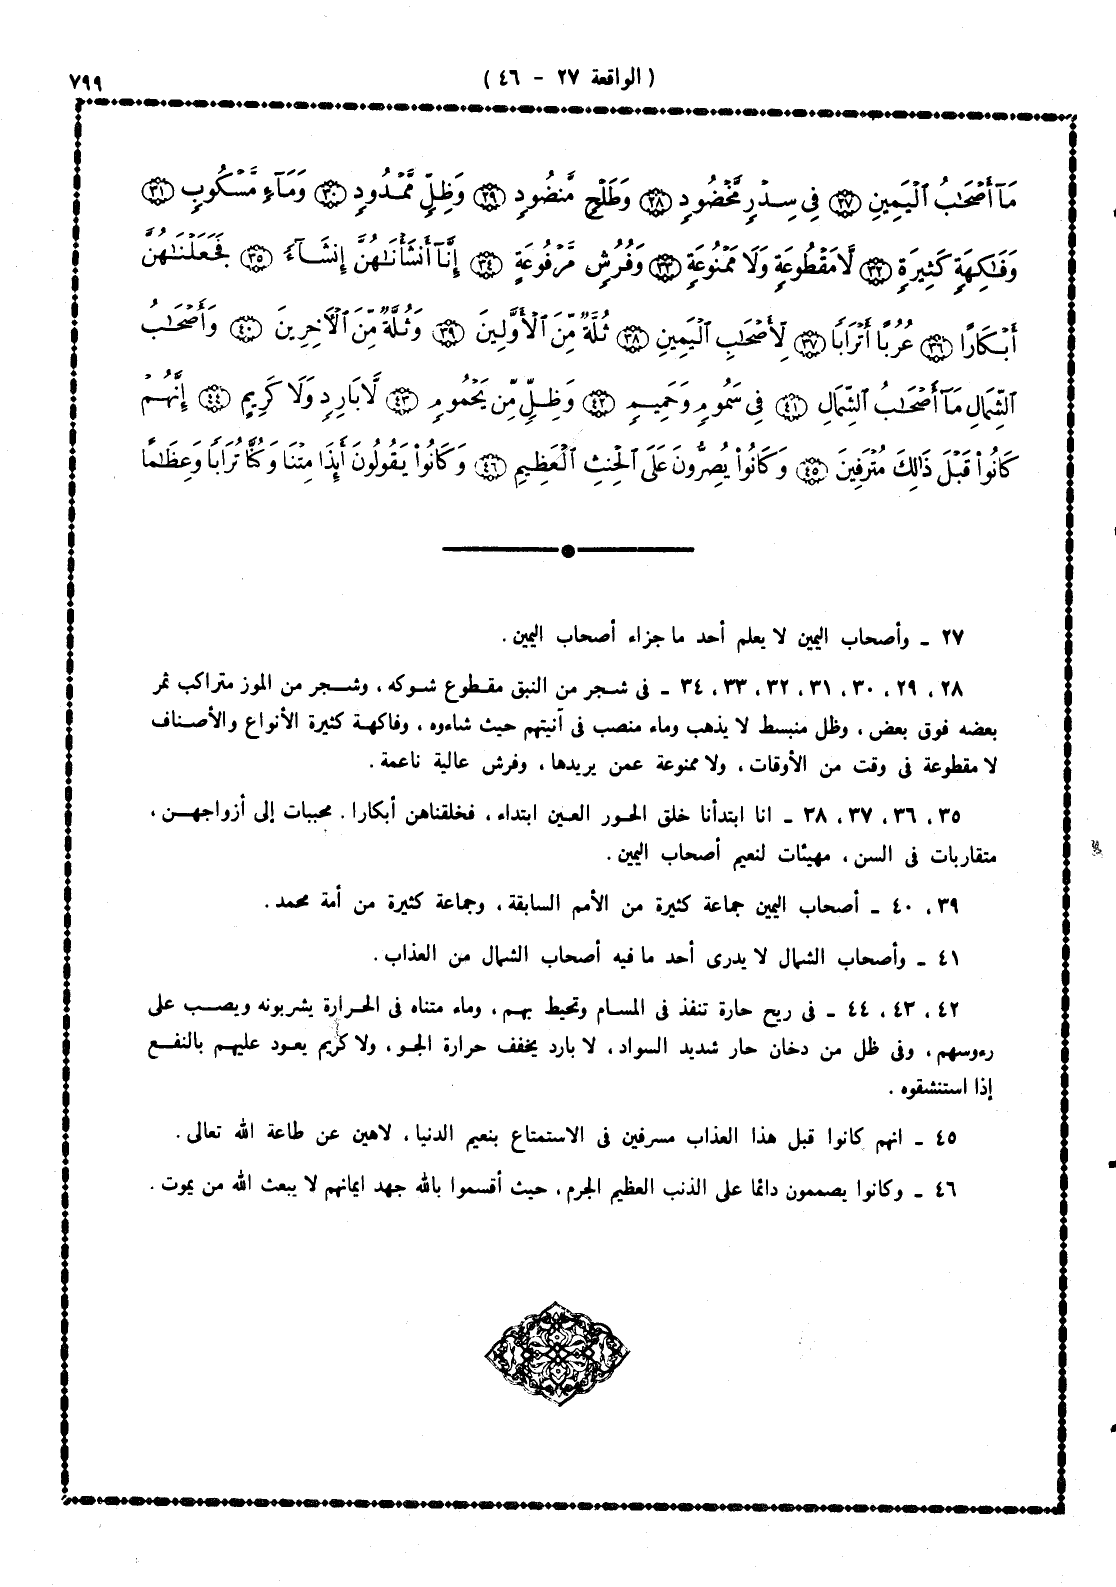 ( الواقعة ٢٧ - ٤٦ )
٧٩٩
مَآ أَصْحَٰبُ ٱلْيَمِينِ ٢٧ فِى سِدْرٍ مَّخْضُودٍ ٢٨ وَطَلْحٍ مَّنضُودٍ ٢٩ وَظِلٍّ مَّمْدُودٍ ٣٠ وَمَآءٍ مَّسْكُوبٍ ٣١
وَفَٰكِهَةٍ كَثِيرَةٍ ٣٢ لَّا مَقْطُوعَةٍ وَلَا مَمْنُوعَةٍ ٣٣ وَفُرُشٍ مَّرْفُوعَةٍ ٣٤ إِنَّآ أَنشَأْنَٰهُنَّ إِنشَآءً ٣٥ فَجَعَلْنَٰهُنَّ
أَبْكَارًا ٣٦ عُرُبًا أَتْرَابًا ٣٧ لِّأَصْحَٰبِ ٱلْيَمِينِ ٣٨ ثُلَّةٌ مِّنَ ٱلْأَوَّلِينَ ٣٩ وَثُلَّةٌ مِّنَ ٱلْآخِرِينَ ٤٠ وَأَصْحَٰبُ
ٱلشِّمَالِ مَآ أَصْحَٰبُ ٱلشِّمَالِ ٤١ فِى سَمُومٍ وَحَمِيمٍ ٤٢ وَظِلٍّ مِّن يَحْمُومٍ ٤٣ لَّا بَارِدٍ وَلَا كَرِيمٍ ٤٤ إِنَّهُمْ
كَانُوا۟ قَبْلَ ذَٰلِكَ مُتْرَفِينَ ٤٥ وَكَانُوا۟ يُصِرُّونَ عَلَى ٱلْحِنثِ ٱلْعَظِيمِ ٤٦ وَكَانُوا۟ يَقُولُونَ أَئِذَا مِتْنَا وَكُنَّا تُرَابًا وَعِظَٰمًا
٢٧ ـ وأصحاب اليمين لا يعلم أحد ما جزاء أصحاب اليمين .
٢٨ ، ٢٩ ، ٣٠ ، ٣١ ، ٣٢ ، ٣٣ ، ٣٤ ـ فى شجر من النبق مقطوع شوكه ، وشجر من الموز متراكب ثمر
بعضه فوق بعض ، وظل منبسط لا يذهب وماء منصب فى آنيتهم حيث شاءوه ، وفاكهة كثيرة الأنواع والأصناف
لا مقطوعة فى وقت من الأوقات ، ولا ممنوعة عمن يريدها ، وفرش عالية ناعمة .
٣٥ ، ٣٦ ، ٣٧ ، ٣٨ ـ انا ابتدأنا خلق الحور العين ابتداء ، فخلقناهن أبكارا . محببات إلى أزواجهن ،
متقاربات فى السن ، مهيئات لنعيم أصحاب اليمين .
٣٩ ، ٤٠ ـ أصحاب اليمين جماعة كثيرة من الأمم السابقة ، وجماعة كثيرة من أمة محمد .
٤١ ـ وأصحاب الشمال لا يدرى أحد ما فيه أصحاب الشمال من العذاب .
٤٢ ، ٤٣ ، ٤٤ ـ فى ريح حارة تنفذ فى المسام وتحيط بهم ، وماء متناه فى الحرارة يشربونه ويصب على
رءوسهم ، وفى ظل من دخان حار شديد السواد ، لا بارد يخفف حرارة الجو ، ولا كريم يعود عليهم بالنفع
إذا استنشقوه .
٤٥ ـ انهم كانوا قبل هذا العذاب مسرفين فى الاستمتاع بنعيم الدنيا ، لاهين عن طاعة الله تعالى .
٤٦ ـ وكانوا يصممون دائما على الذنب العظيم الجرم ، حيث أقسموا بالله جهد ايمانهم لا يبعث الله من يموت .